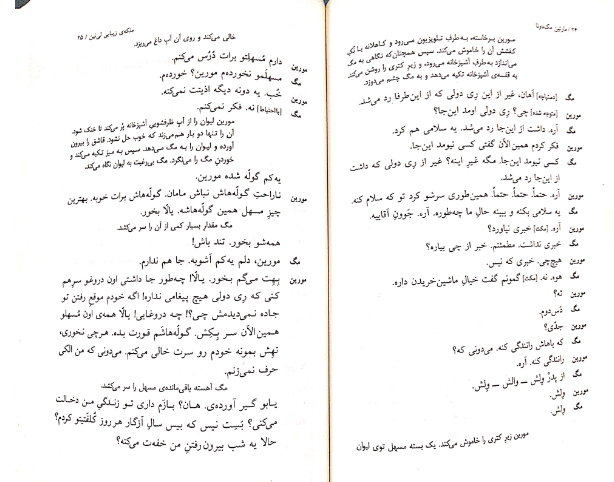 ۲۴ / مارتین مک‌دونا
مورین برخاسته، به‌طرف تلویزیون می‌رود و کاهلانه با تُکِ
کفشش آن را خاموش می‌کند. سپس همچنان‌که نگاهی به مگ
می‌اندازد به‌طرف آشپزخانه می‌رود، و زیرِ کتری را روشن می‌کند
به قفسه‌ی آشپزخانه تکیه می‌دهد و به مگ چشم می‌دوزد.
مگ [عصبانیه] آهان، غیر از این ری دولی که از این‌طرفا رد می‌شد.
مورین [متوجه شده] چی؟ ری دولی اومد این‌جا؟
مگ آره. داشت از این‌جا رد می‌شد. یه سلامی هم کرد.
مورین فکر کردم همین الآن گفتی کسی نیومد این‌جا.
مگ کسی نیومد این‌جا. مگه غیر اینه؟ غیر از ری دولی که داشت
از این‌جا رد می‌شد.
مورین آره. حتماً. حتماً. حتماً. همین‌طوری سرشو کرد تو که سلام کنه.
مگ یه سلامی بکنه و ببینه حالِ ما چه‌طوره. آره. جَوونِ آقاییه.
مورین آره. [مکث] خبری نیاورد؟
مگ خبری نداشت. مطمئنم. خبر از چی بیاره؟
مورین هیچ‌چی. خبری که نیس.
مگ هوه. نه. [مکث] گمونم گفت خیال ماشین‌خریدن داره.
مورین نَه؟
مگ دَس‌دوم.
مورین جدّی؟
مگ که باهاش رانندگی کنه. می‌دونی که؟
مورین رانندگی کنه. آره.
مگ از پدرْ وِلش ــ والش ــ وِلش.
مورین وِلش.
مگ وِلش.
مورین زیرِ کتری را خاموش می‌کند. یک بسته مسهل توی لیوان
ملکه‌ی زیبایی لی‌نین / ۲۵
خالی می‌کند و روی آن آبِ داغ می‌ریزد.
مورین دارم مُسهلِتو برات دُرُس می‌کنم.
مگ مسهلَمو نخورده‌م مورین؟ خورده‌م.
مورین خُب، یه دونه دیگه اذیتت نمی‌کنه.
مگ [بااحتیاط] نه. فکر نمی‌کنم.
مورین لیوان را از آبِ ظرفشویی آشپزخانه پُر می‌کند تا خنک شود.
آن را تنها دو بار هم می‌زند که خوب حل نشود. قاشق را بیرون
آورده و لیوان را به مگ می‌دهد. سپس به میز تکیه می‌کند و
خوردنِ مگ را می‌نگرد. مگ بی‌رغبت به لیوان نگاه می‌کند.
مگ یه‌کم گولّه شده مورین.
مورین ناراحتِ گولّه‌هاش نباش مامان. گولّه‌هاش برات خوبه. بهترین
چیزِ مسهل همین گولّه‌هاشه. یالّا بخور.
مگ مقدار بسیار کمی از آن را سر می‌کشد
مورین همه‌شو بخور. تند باش!
مگ مورین، دلم یه‌کم آشوبه. جا هم ندارم.
مورین بِهِت می‌گم بخور. یالّا! چه‌طور جا داشتی اون دروغو سرِهم
کنی که ری دولی هیچ پیغامی نداره! اگه خودم موقعِ رفتن تو
جاده نمی‌دیدمش چی؟! چه دروغایی! یالّا همه‌ی اون مُسهلو
همین‌الآن سر بِکِش. گولّه‌هاشَم قورت بده. هرچی نخوری،
تَهِش بمونه خودم رو سرت خالی می‌کنم. می‌دونی که من الکی
حرف نمی‌زنم.
مگ آهسته باقی‌مانده‌ی مسهل را سر می‌کشد
مورین یابو گیر آورده‌ی. هان؟ بازَم داری تو زندگیِ من دخالت
می‌کنی؟ بَسِت نیس که بیس سالِ آزگار هر روز کُلفَتیتو کردم؟
حالا یه شب بیرون‌رفتنِ من خفه‌ت می‌کنه؟